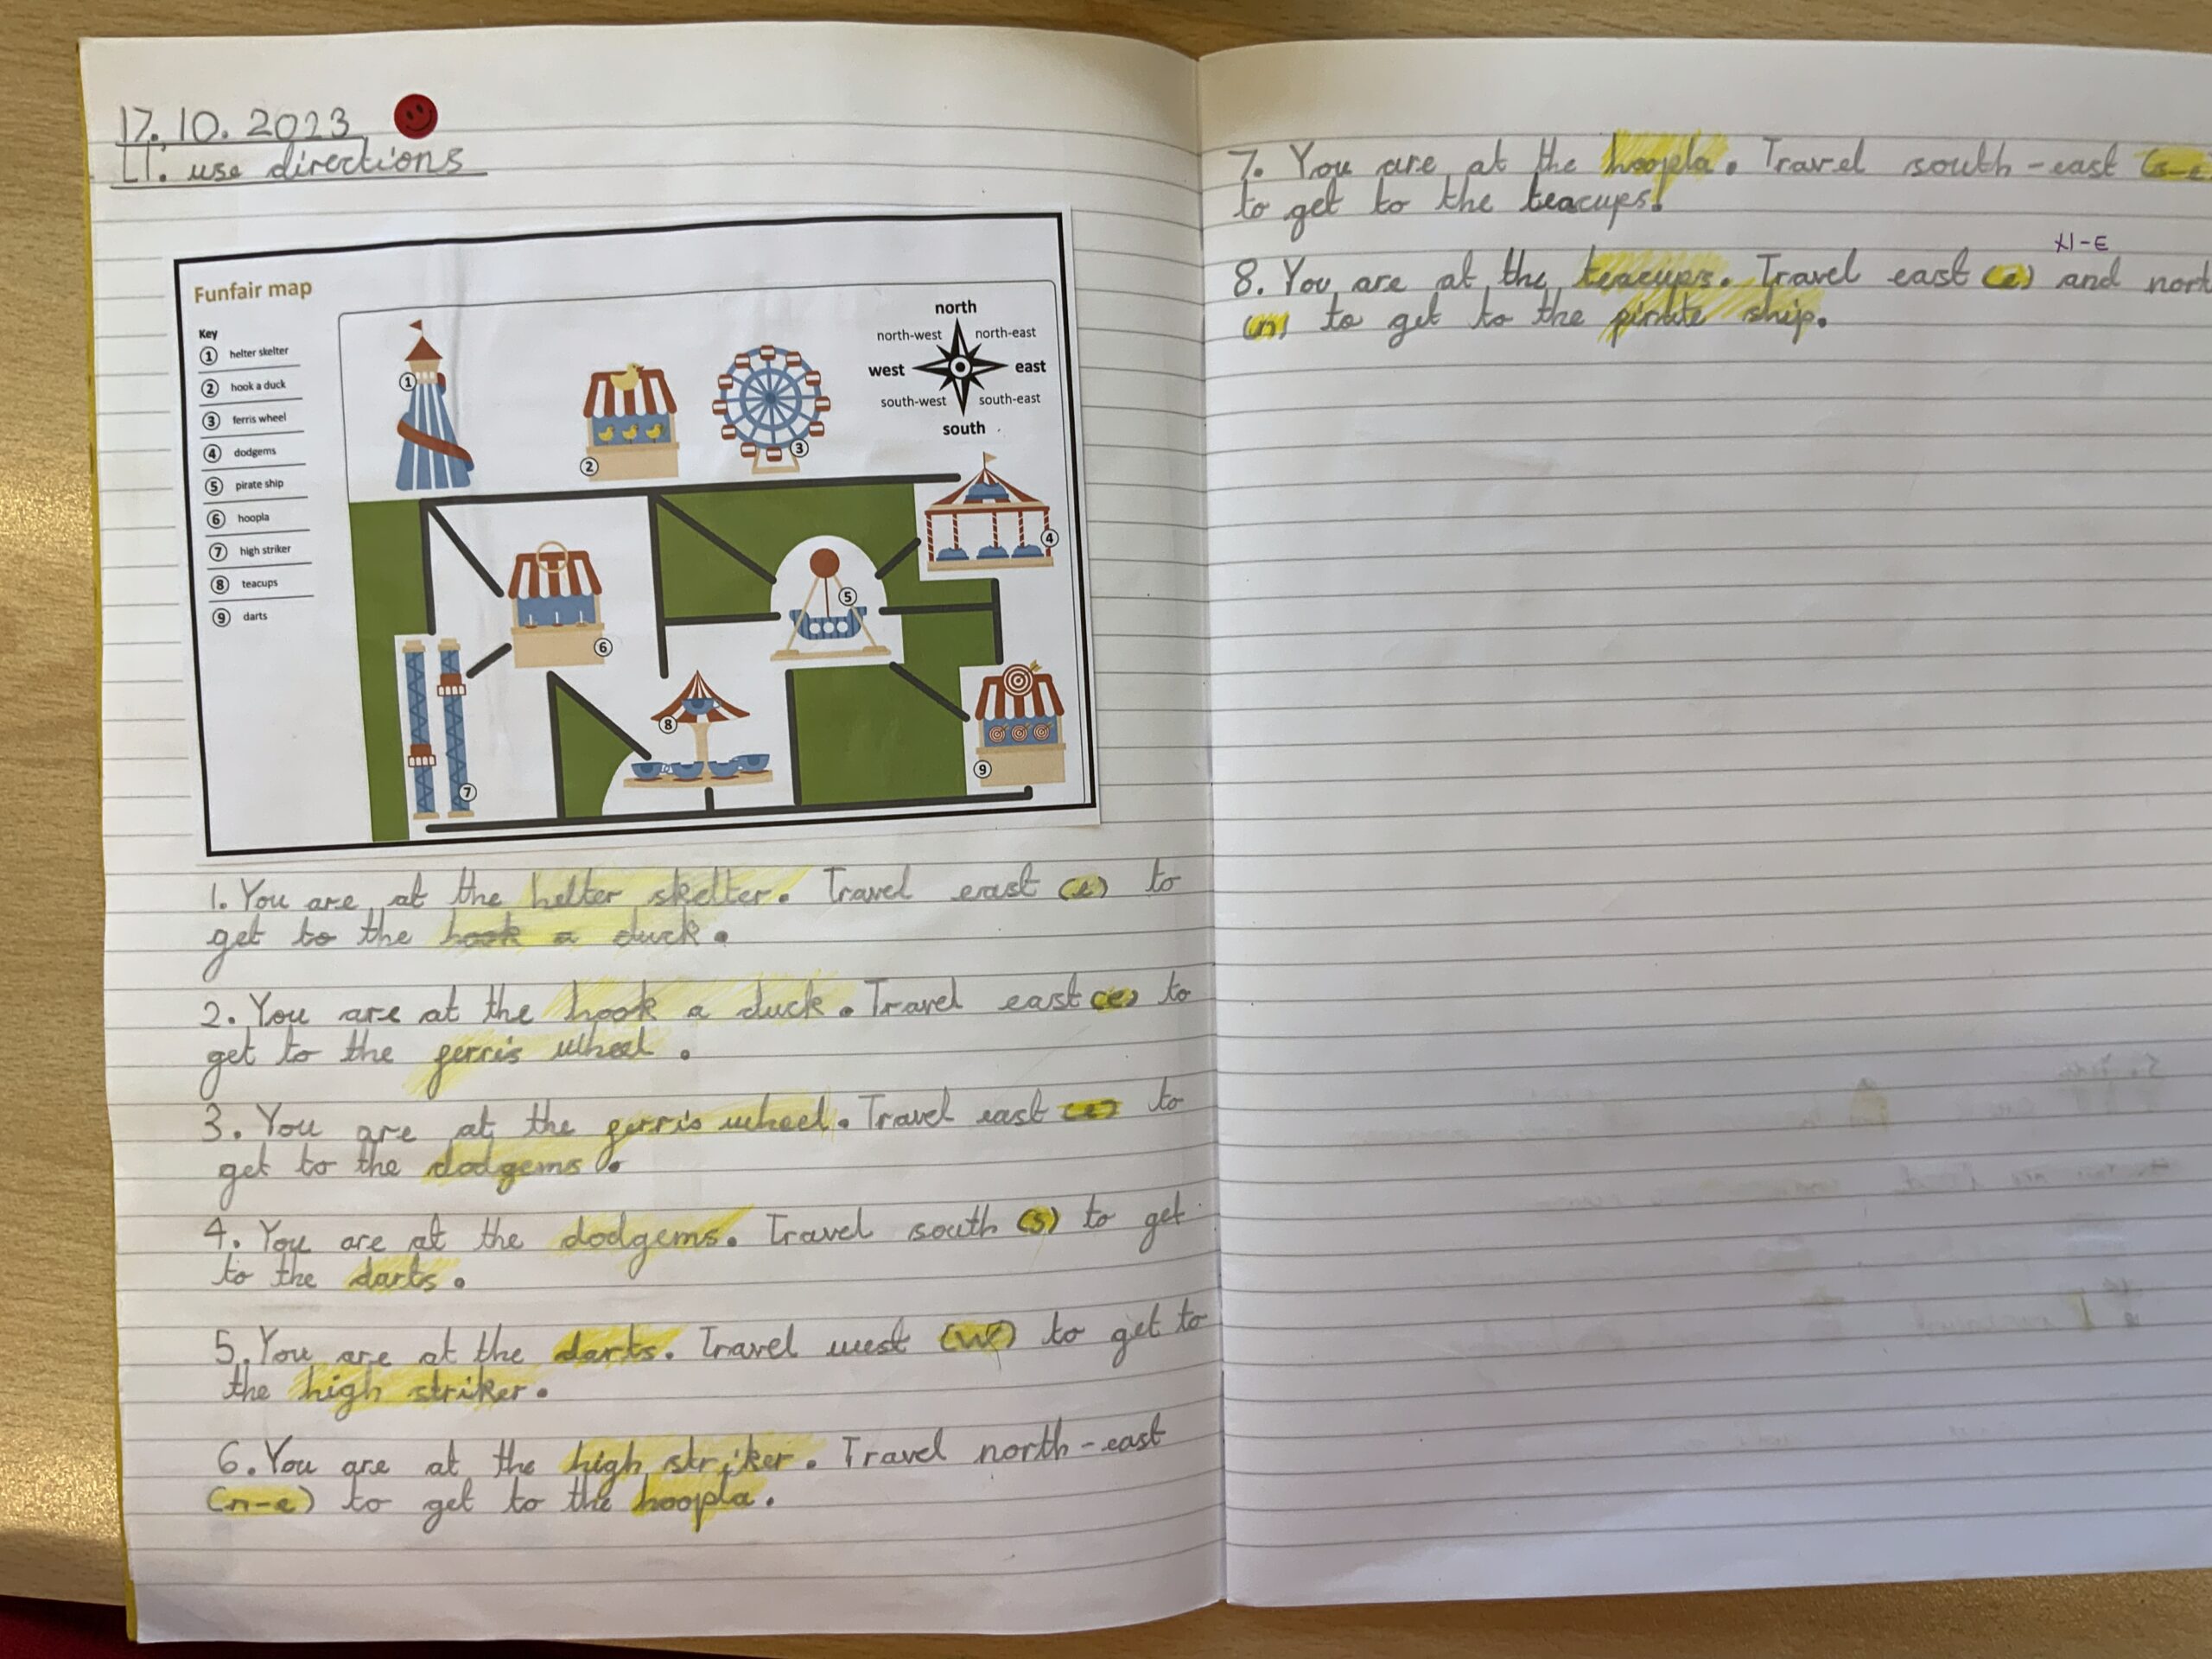 17.10.2023
LI: use directions
Funfair map
Key
1 helter skelter
2 hook a duck
3 ferris wheel
4 dodgems
5 pirate ship
6 hoopla
7 high striker
8 teacups
9 darts
north
north-west north-east
west east
south-west south-east
south
1
2
3
4
5
6
7
8
9
1. You are at the helter skelter. Travel east (e) to
get to the hook a duck.
2. You are at the hook a duck. Travel east (e) to
get to the ferris wheel.
3. You are at the ferris wheel. Travel east (e) to
get to the dodgems.
4. You are at the dodgems. Travel south (s) to get
to the darts.
5. You are at the darts. Travel west (w) to get to
the high striker.
6. You are at the high striker. Travel north-east
(n-e) to get to the hoopla.
7. You are at the hoopla. Travel south-east (s-e)
to get to the teacups.
N-E
8. You are at the teacups. Travel east (e) and nort
(n) to get to the pirate ship.